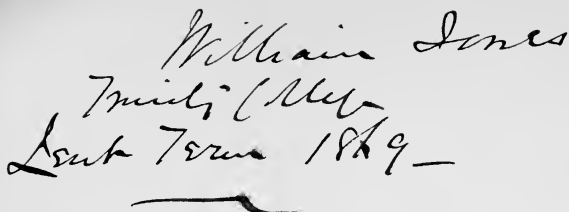 William Jones
Trinity College
Lent Term 1869_